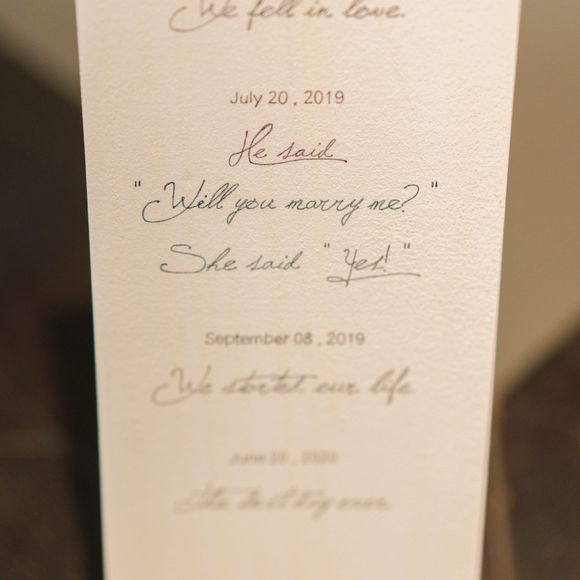 We fell in love.
July 20 , 2019
He said
" Will you marry me? "
She said " Yes! "
September 08 , 2019
We started our life
June 20 , 2020
The best day ever